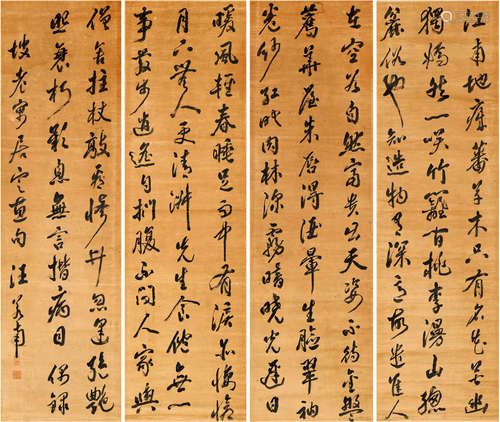 江南地瘴蕃草木只有名花苦幽
獨嫣然一笑竹籬間桃李漫山總
麤俗也知造物有深意故遣佳人
在空谷自然富貴出天姿不待金盤
薦華屋朱唇得酒暈生臉翠袖
卷紗紅映肉林深霧暗曉光遲日
暖風輕春睡足雨中有淚亦悽愴
月下無人更清淑先生食飽無一
事散步逍遙自捫腹不問人家與
僧舍拄杖敲門看修竹忽逢絕艷
照衰朽歎息無言揩病目偶錄
坡老寓居定惠句 汪